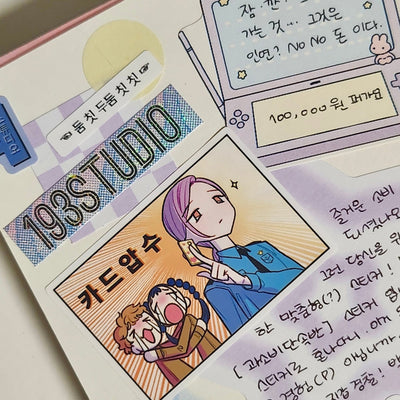 잠 · 깐 !
가는 것··· 그것은
인연? NO NO 돈 이다.
100,000원
둠칫두둠칫칫
193STUDIO
카드압수
즐거운 소비
되셨나요
그런 당신을 위
한 맞춤형(?) 스티커!
[과소비단속반] 스티커
스티커로 혼나다니..이게
경험(?) 아닙니까
직접 경찰!